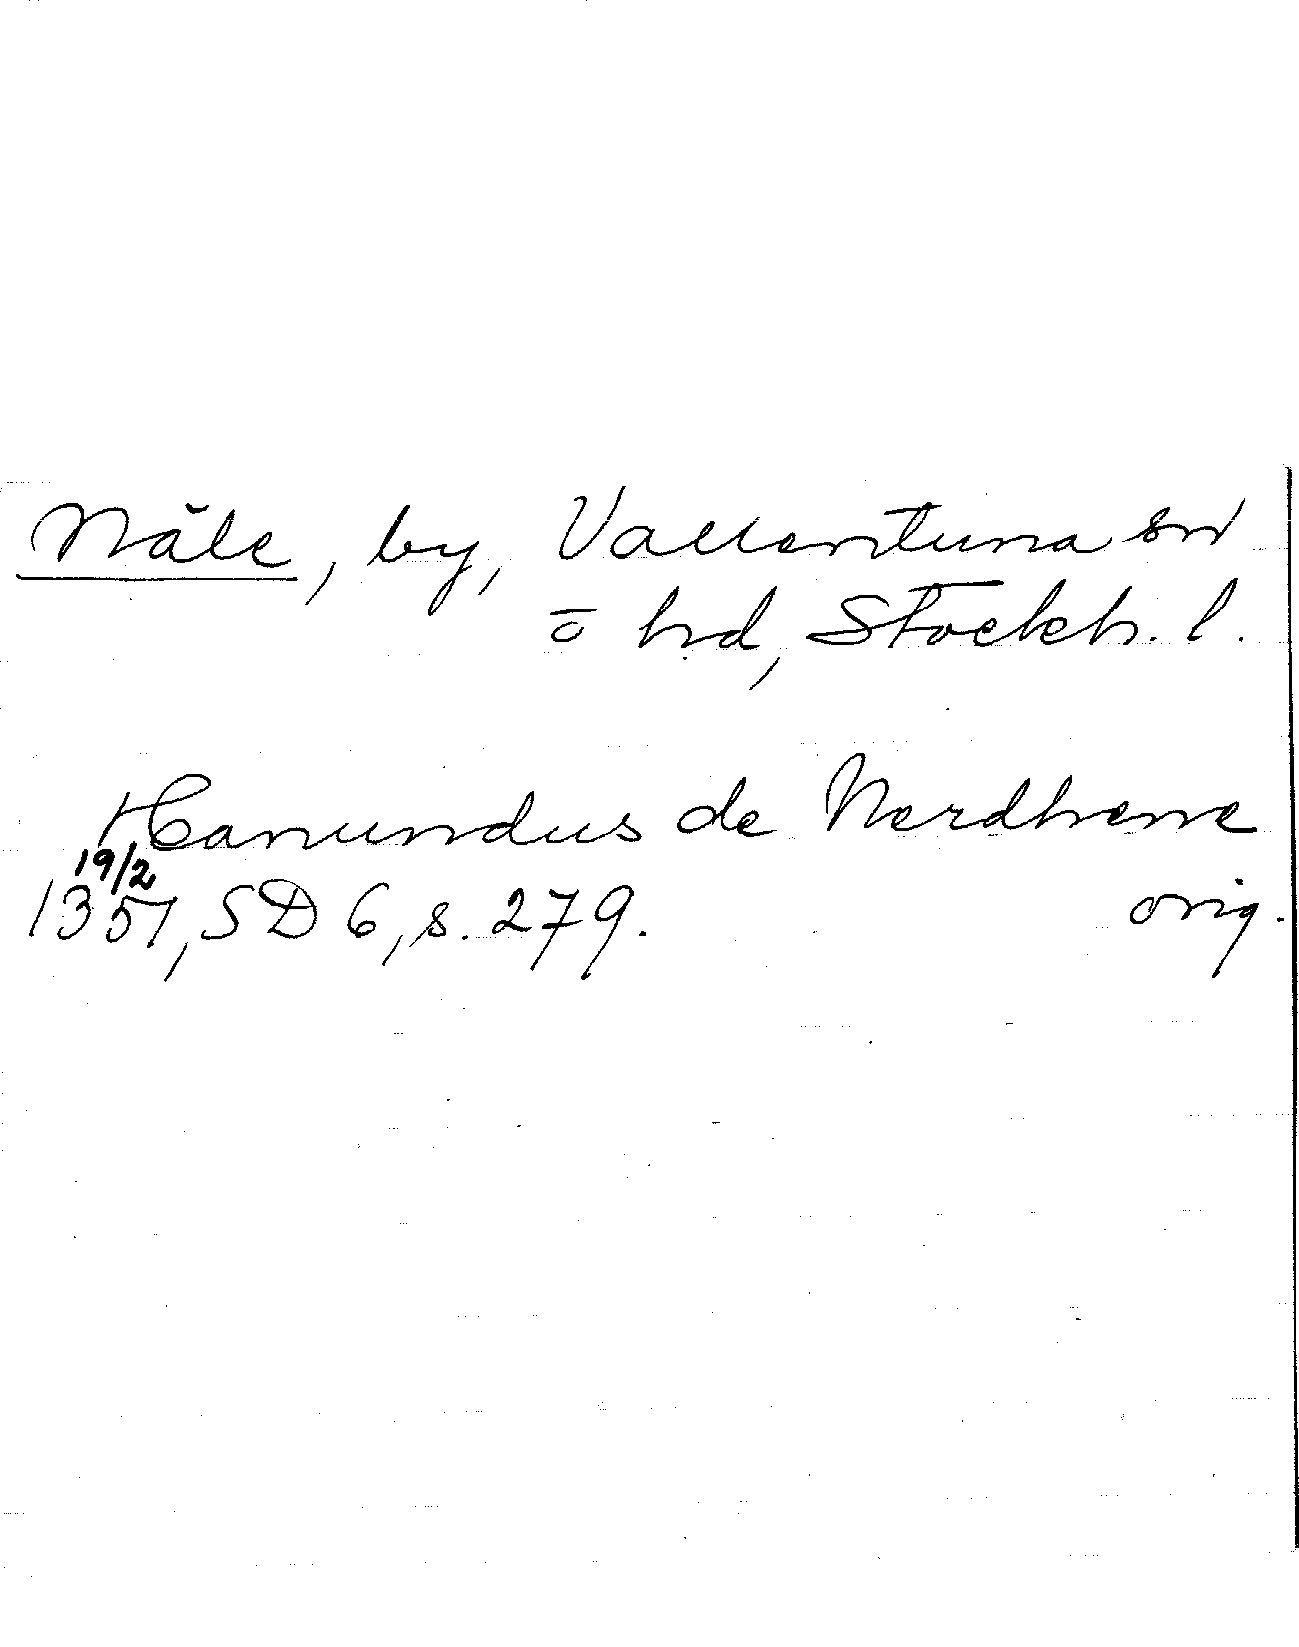 Nåle, by, Vallentuna sn
o hd, Stockh. l.
Hanundus de Nerdhene
19/2
1351, SD 6, s. 279. orig.